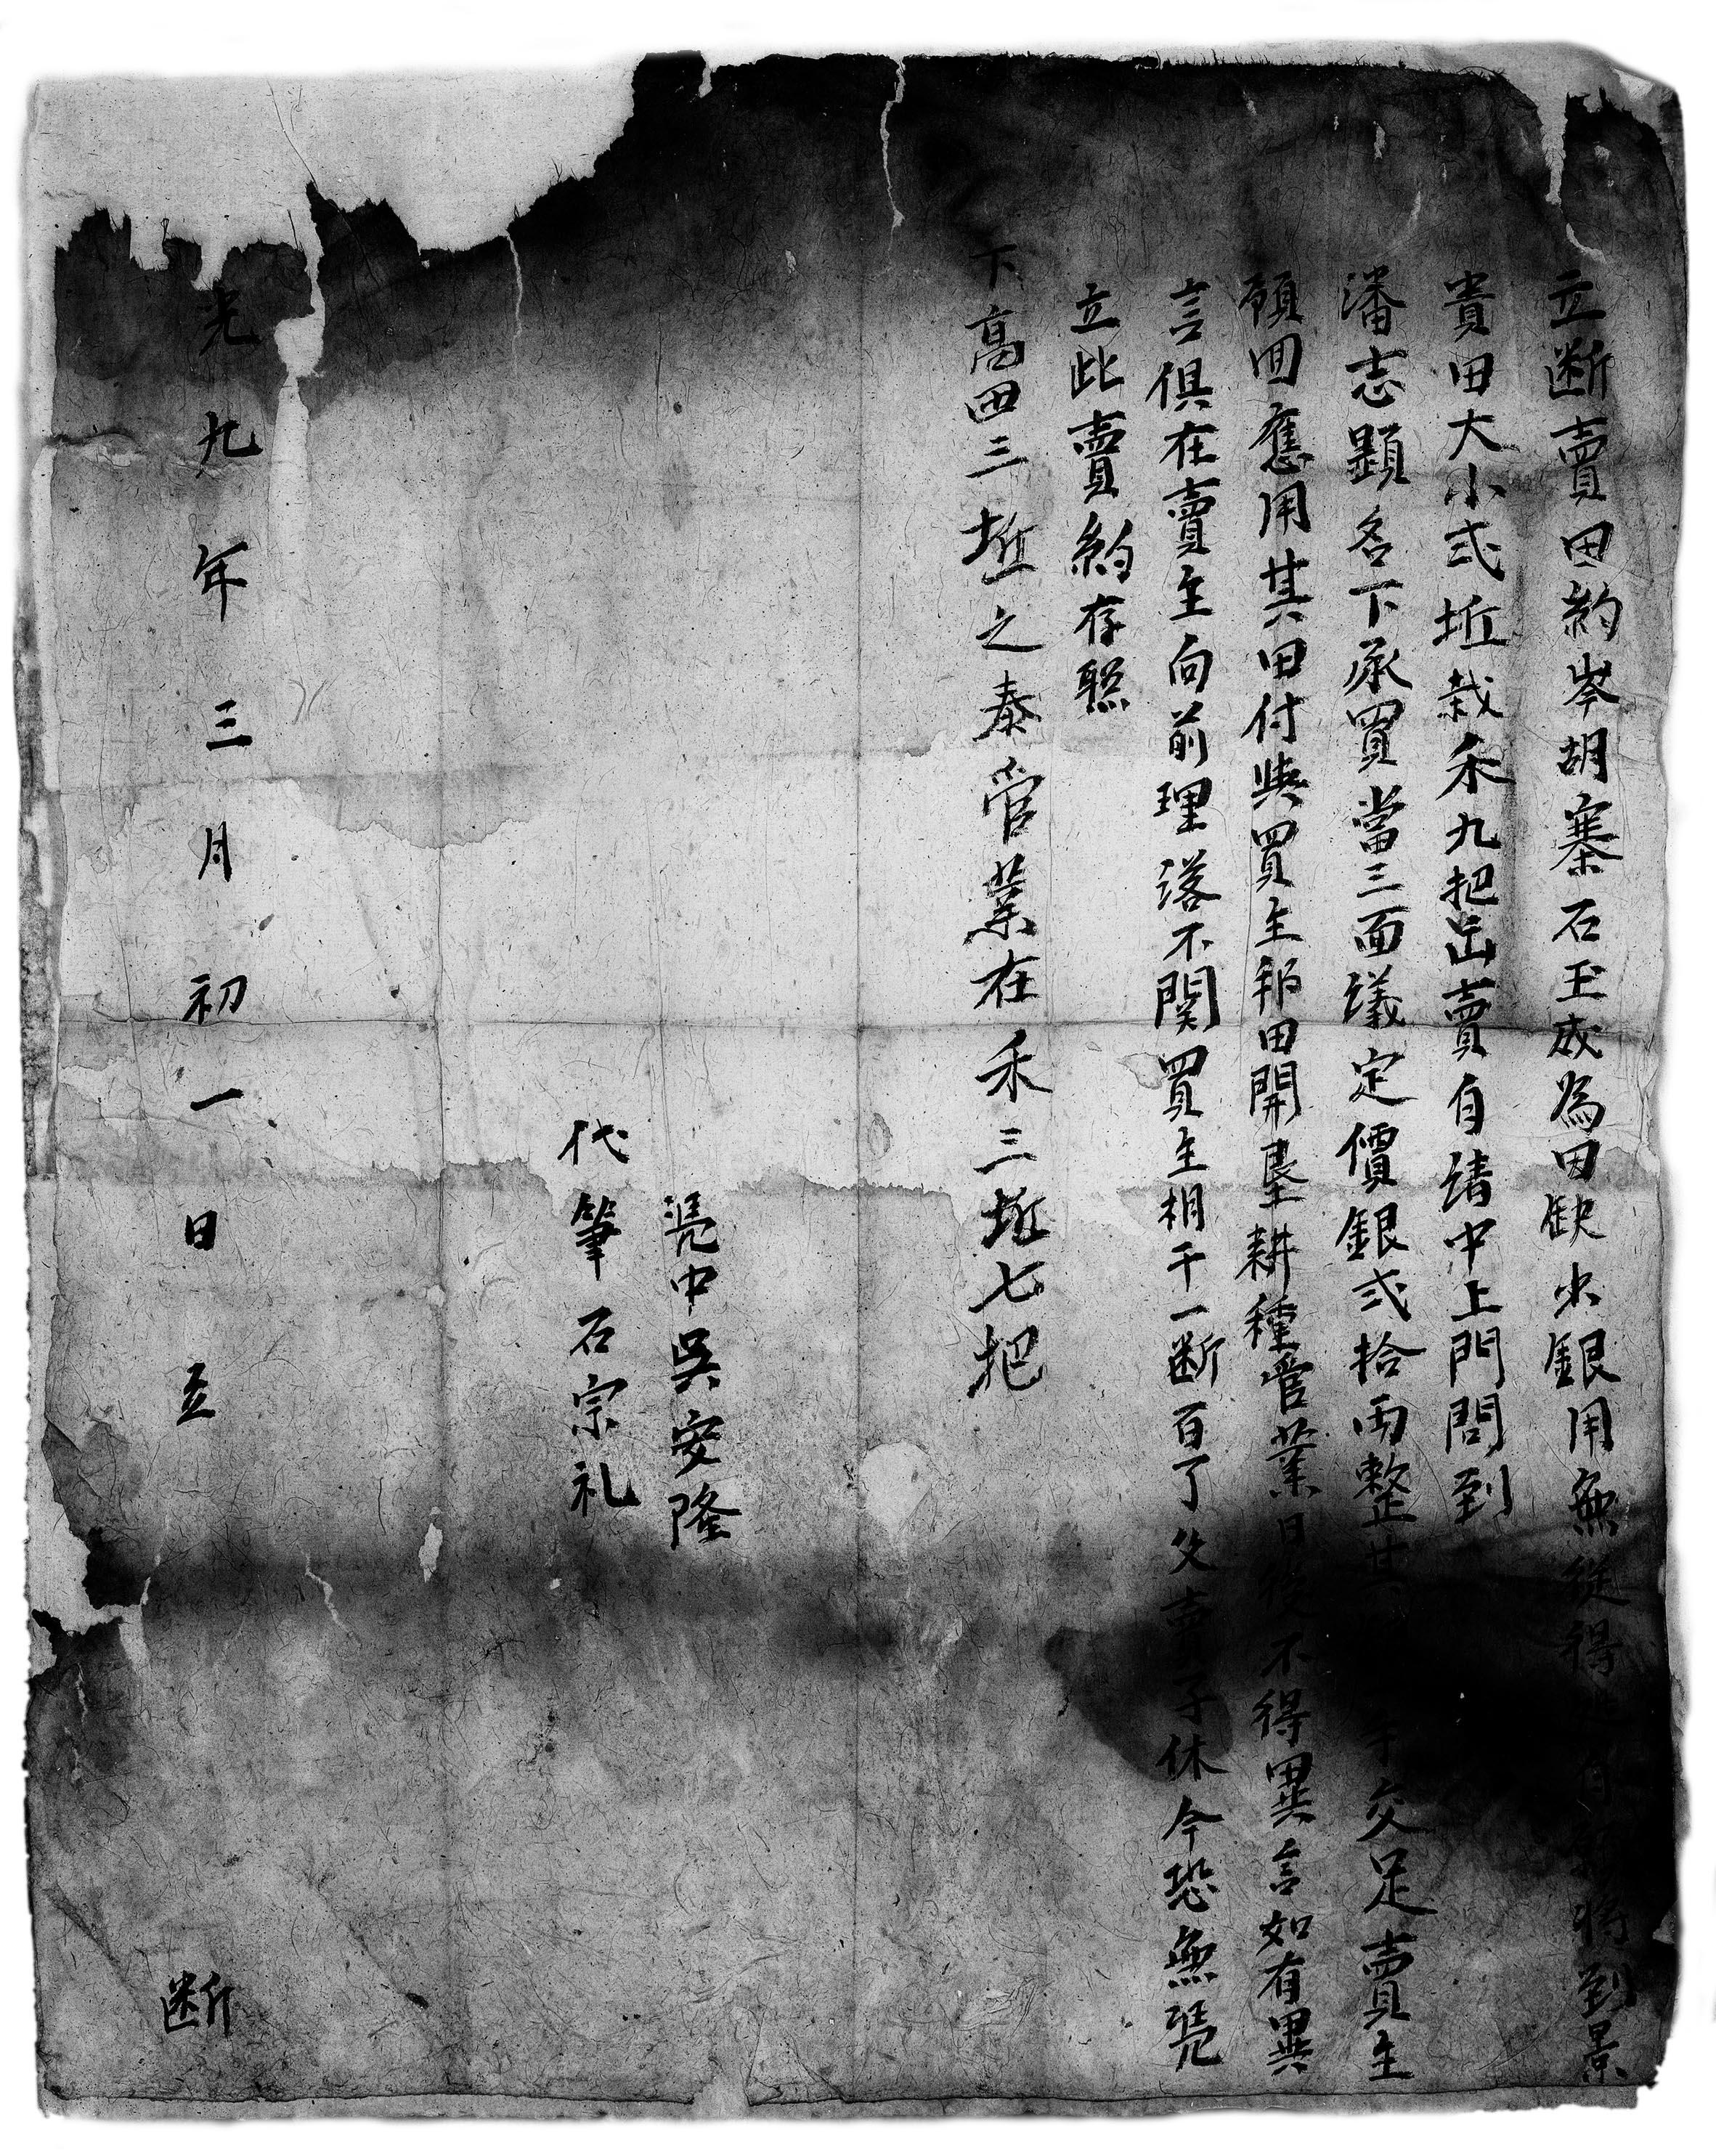 立断賣田約岑胡寨石玉成為田缺少銀用無從得處自願將到景
貴田大小弍坵栽禾九把出賣自請中上門問到
潘志顕名下承買當三面議定價銀弍拾両整其手交足賣主
領囬應用其田付與買主耕田開墾耕種管業日後不得異言如有異
言俱在賣主向前理落不関買主相干一断百了父賣子休今恐無凴
立此賣約存照
下高田三坵之泰管業在禾三坵七把
凴中吳安隆
代筆石宗礼
光九年三月初一日立 断